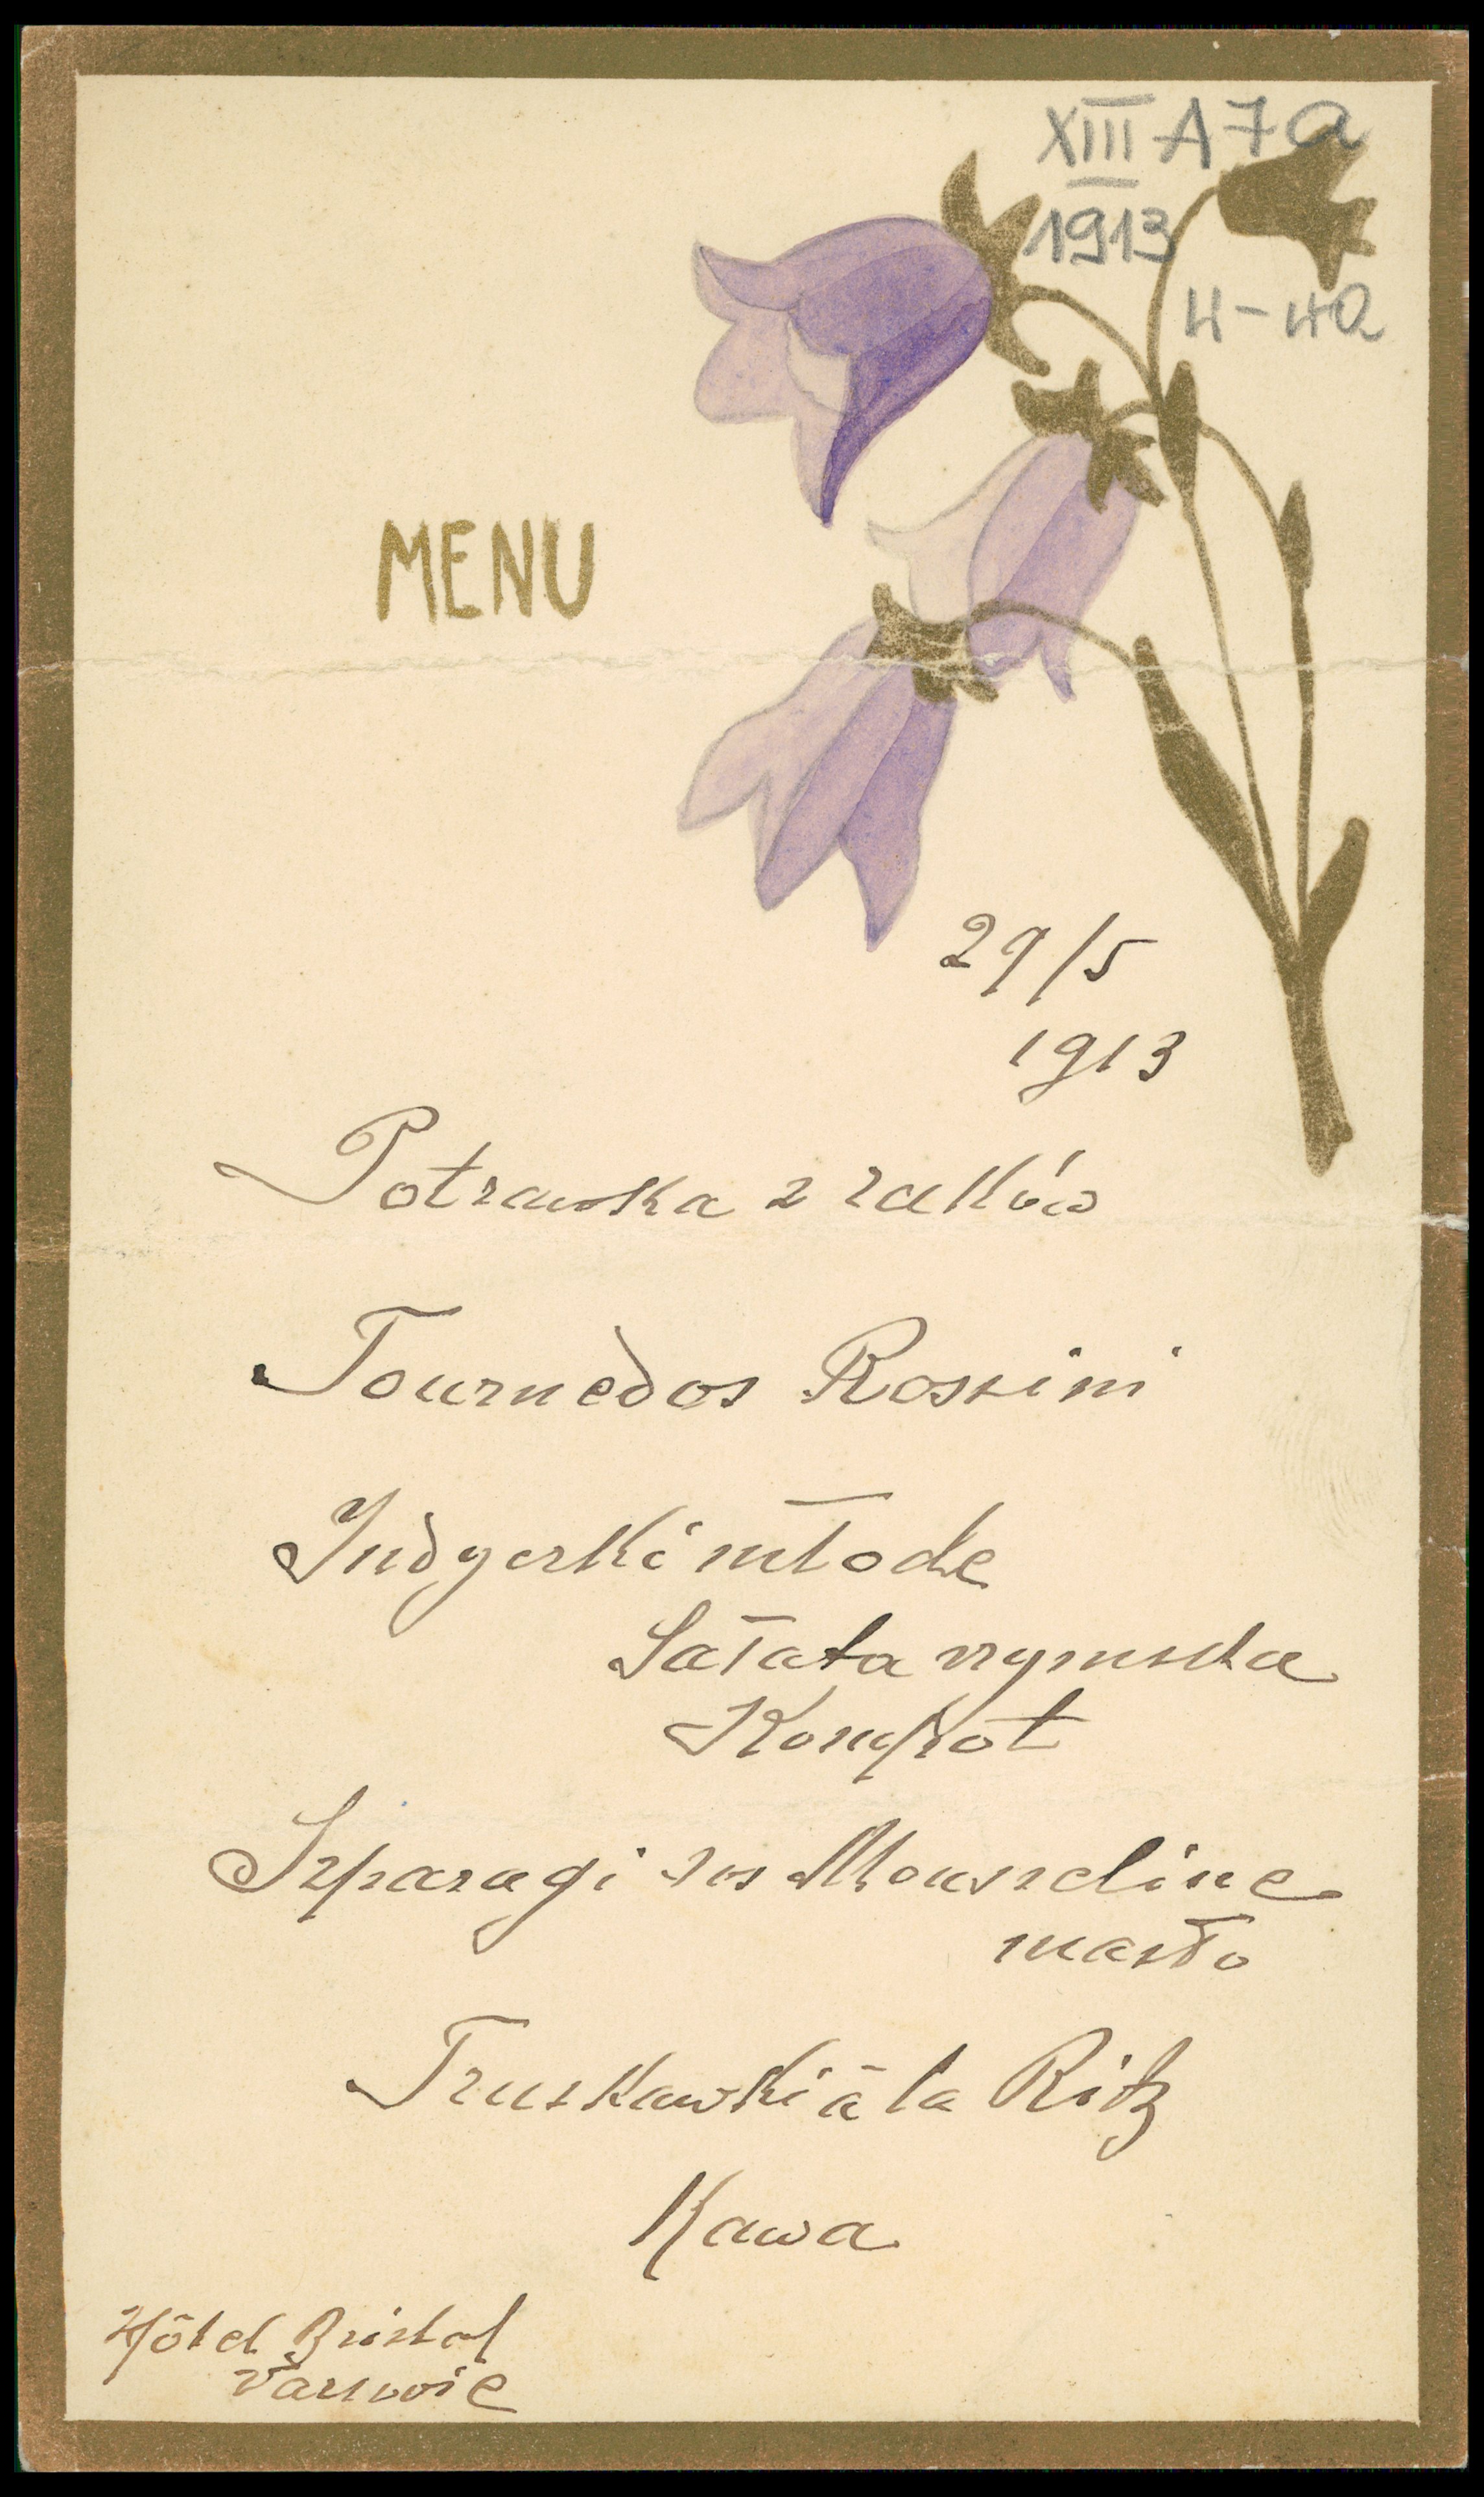 XIII A 7a
1913
4-4a
MENU
29/5
1913
Potrawka z raków
Tournedos Rossini
Indyczki młode
Sałata rzymska
Kompot
Szparagi sos Mousseline
masło
Truskawki à la Ritz
Kawa
Hôtel Bristol
Varsovie